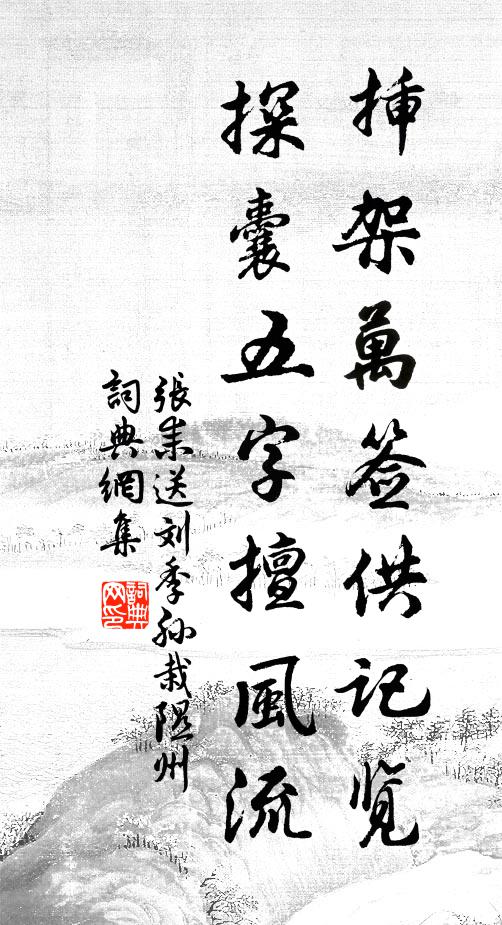 挿架萬签供记览
探囊五字擅風流
張耒送刘季孙栽隰州
詞典網集
詞典网印